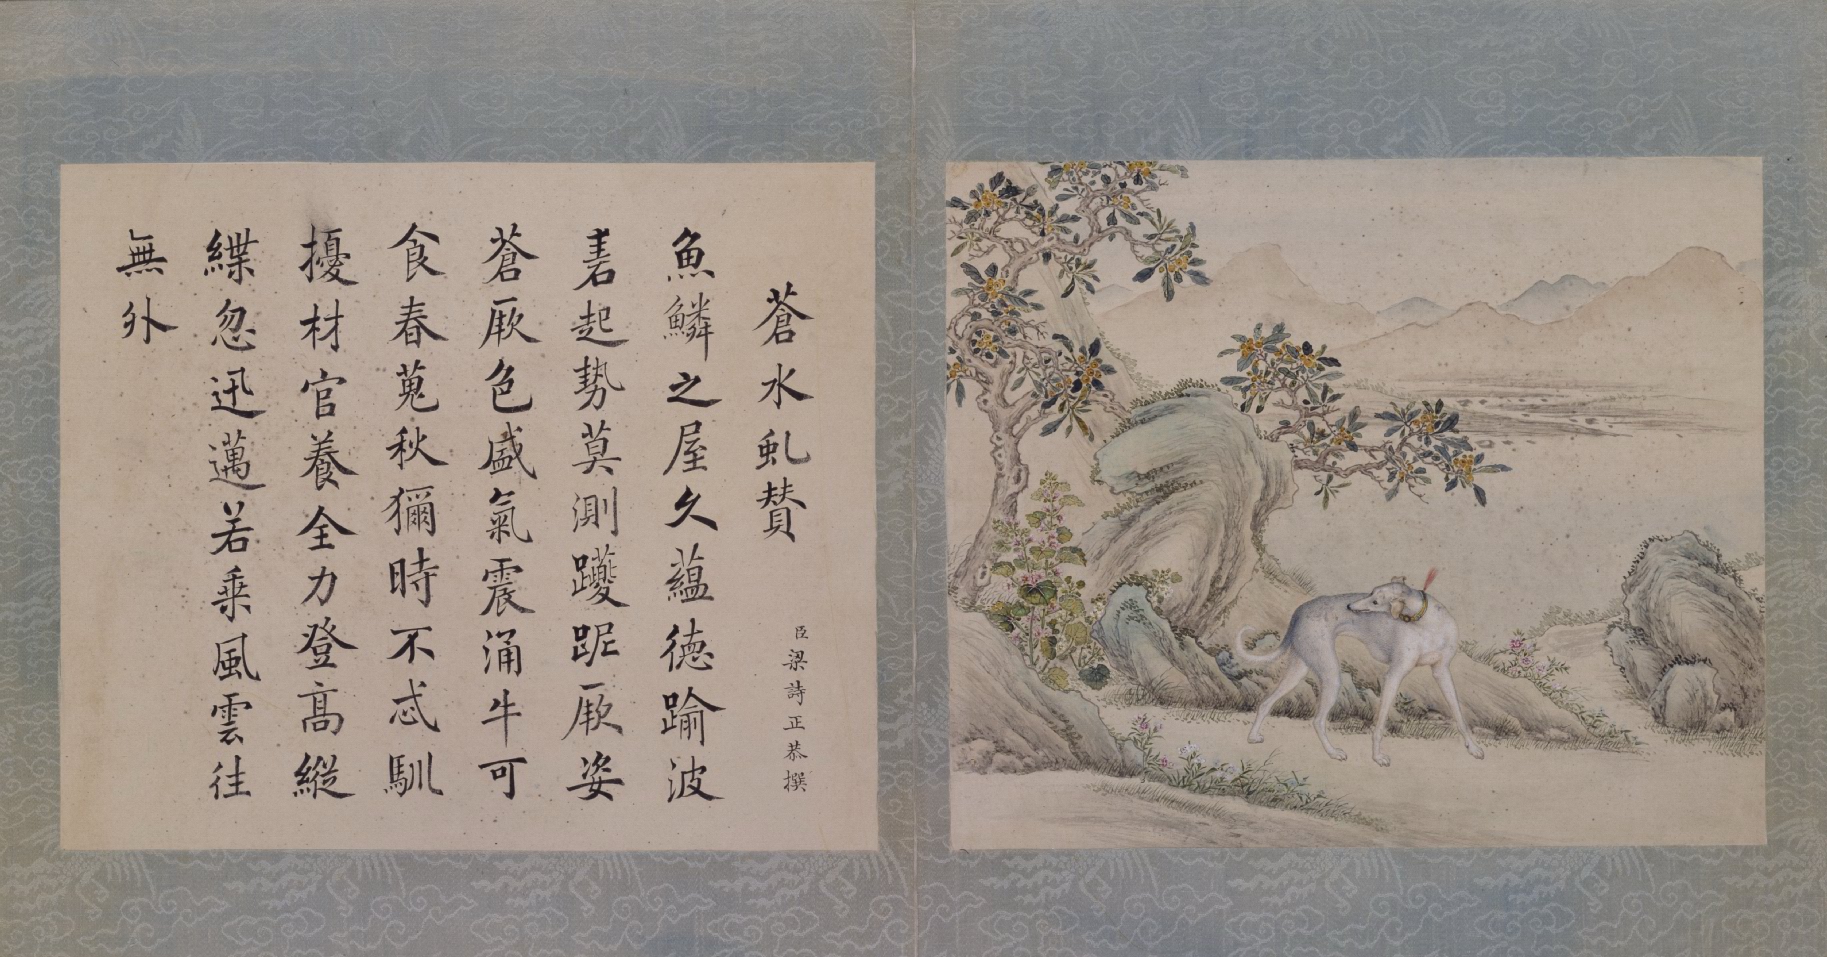 蒼水虬賛
臣梁詩正恭撰
魚鱗之屋久蘊徳踰波
砉起勢莫測躨跜厥姿
蒼厥色盛氣震涌牛可
食春蒐秋獮時不忒馴
擾材官養全力登髙縱
緤忽迅邁若乗風雲往
無外